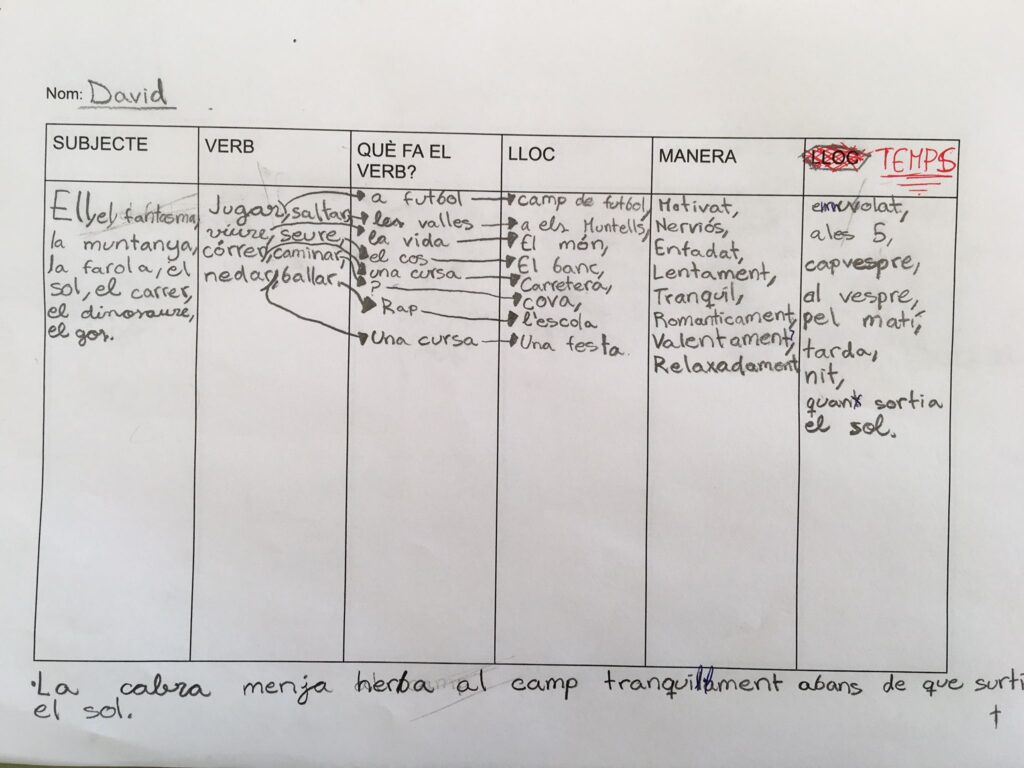 Nom: David
SUBJECTE
Ell, el fantasma,
la muntanya,
la farola, el
sol, el carrer,
el dinosaure,
el gos.
VERB
Jugar, saltar,
viure, seure,
córrer, caminar,
nedar, ballar.
QUÈ FA EL
VERB?
a futbol
les valles
la vida
el cos
una cursa
?
Rap
Una cursa
LLOC
camp de futbol,
a els Muntells,
El món,
El banc,
Carretera,
cova,
l'escola
Una festa.
MANERA
Motivat,
Nerviós,
Enfadat,
Lentament,
Tranquil,
Romanticament,
Valentament,
Relaxadament
LLOC TEMPS
ales 5,
capvespre,
al vespre,
pel matí,
tarda,
nit,
sortia
el sol.
·La cabra menja herba al camp tranquil·lament abans de que surti
el sol.